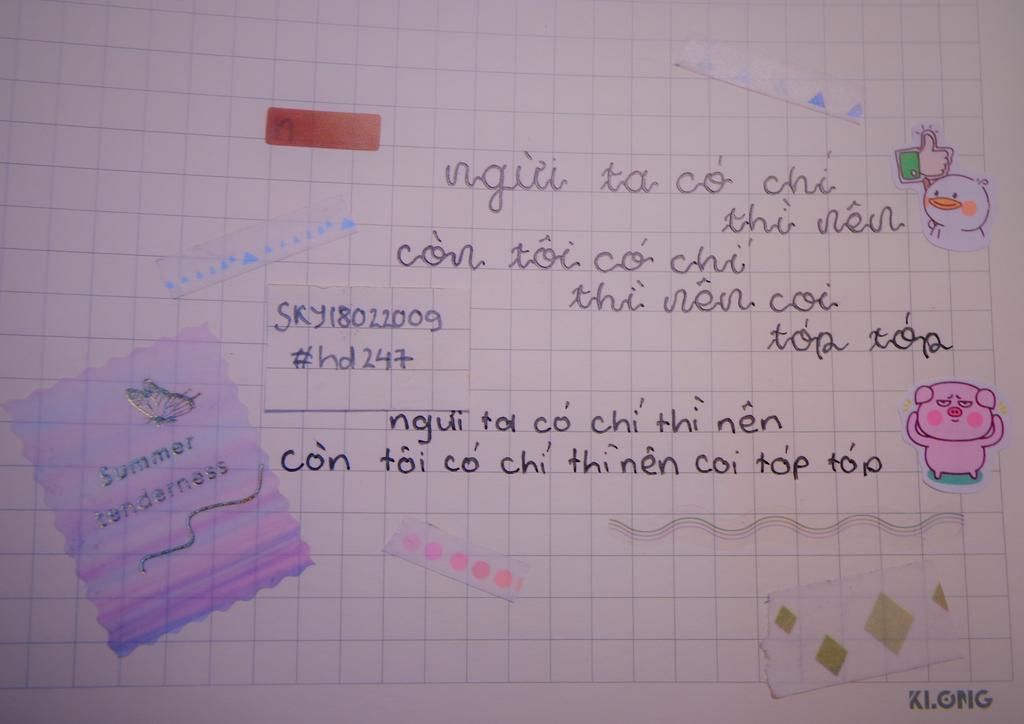 ngừi ta có chí
thì nên
còn tôi có chí
thì nên coi
tóp tóp
SKY18022009
#hd247
ngưi ta có chí thì nên
còn tôi có chí thì nên coi tóp tóp
Summer
tenderness
KLONG